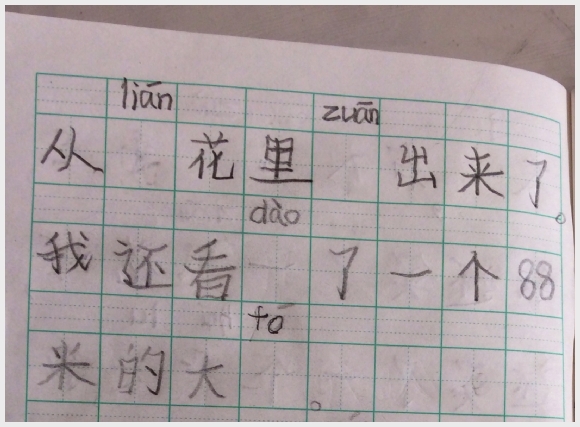 lián zuān
从 花里 出来了。
dào
我还看 了一个88
fó
米的大 。